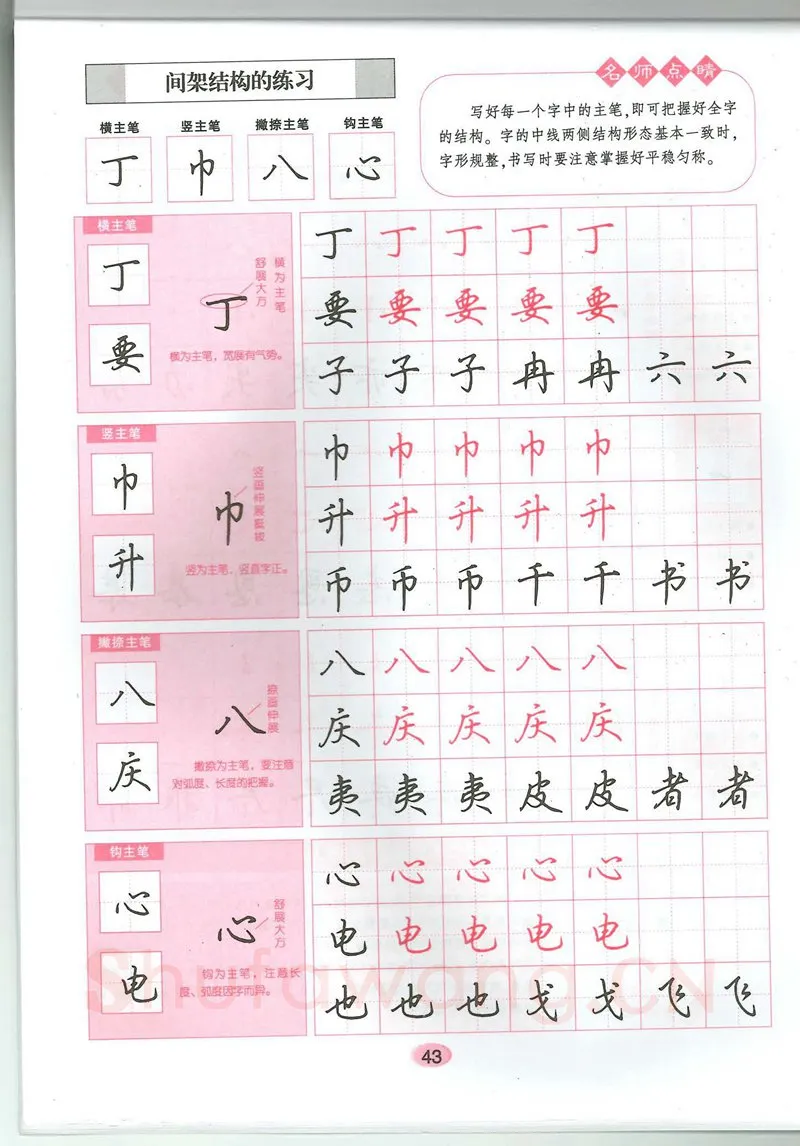 间架结构的练习
名师点睛
写好每一个字中的主笔，即可把握好全字
的结构。字的中线两侧结构形态基本一致时，
字形规整，书写时要注意掌握好平稳匀称。
横主笔 竖主笔 撇捺主笔 钩主笔
丁 巾 八 心
横主笔
丁
要
丁
横为主笔
舒展大方
横为主笔，宽展有气势。
丁 丁 丁 丁 丁
要 要 要 要 要
子 子 子 冉 冉 六 六
竖主笔
巾
升
巾
竖为主笔，竖直字正。
巾 巾 巾 巾 巾
升 升 升 升 升
币 币 币 千 千 书 书
撇捺主笔
八
庆
八
捺画伸展
撇捺为主笔，要注意
对弧度、长度的把握。
八 八 八 八 八
庆 庆 庆 庆 庆
夷 夷 夷 皮 皮 者 者
钩主笔
心
电
心
舒展大方
钩为主笔，注意长
度、弧度因字而异。
心 心 心 心 心
电 电 电 电 电
也 也 也 戈 戈 飞 飞
Shufawang.CN
43